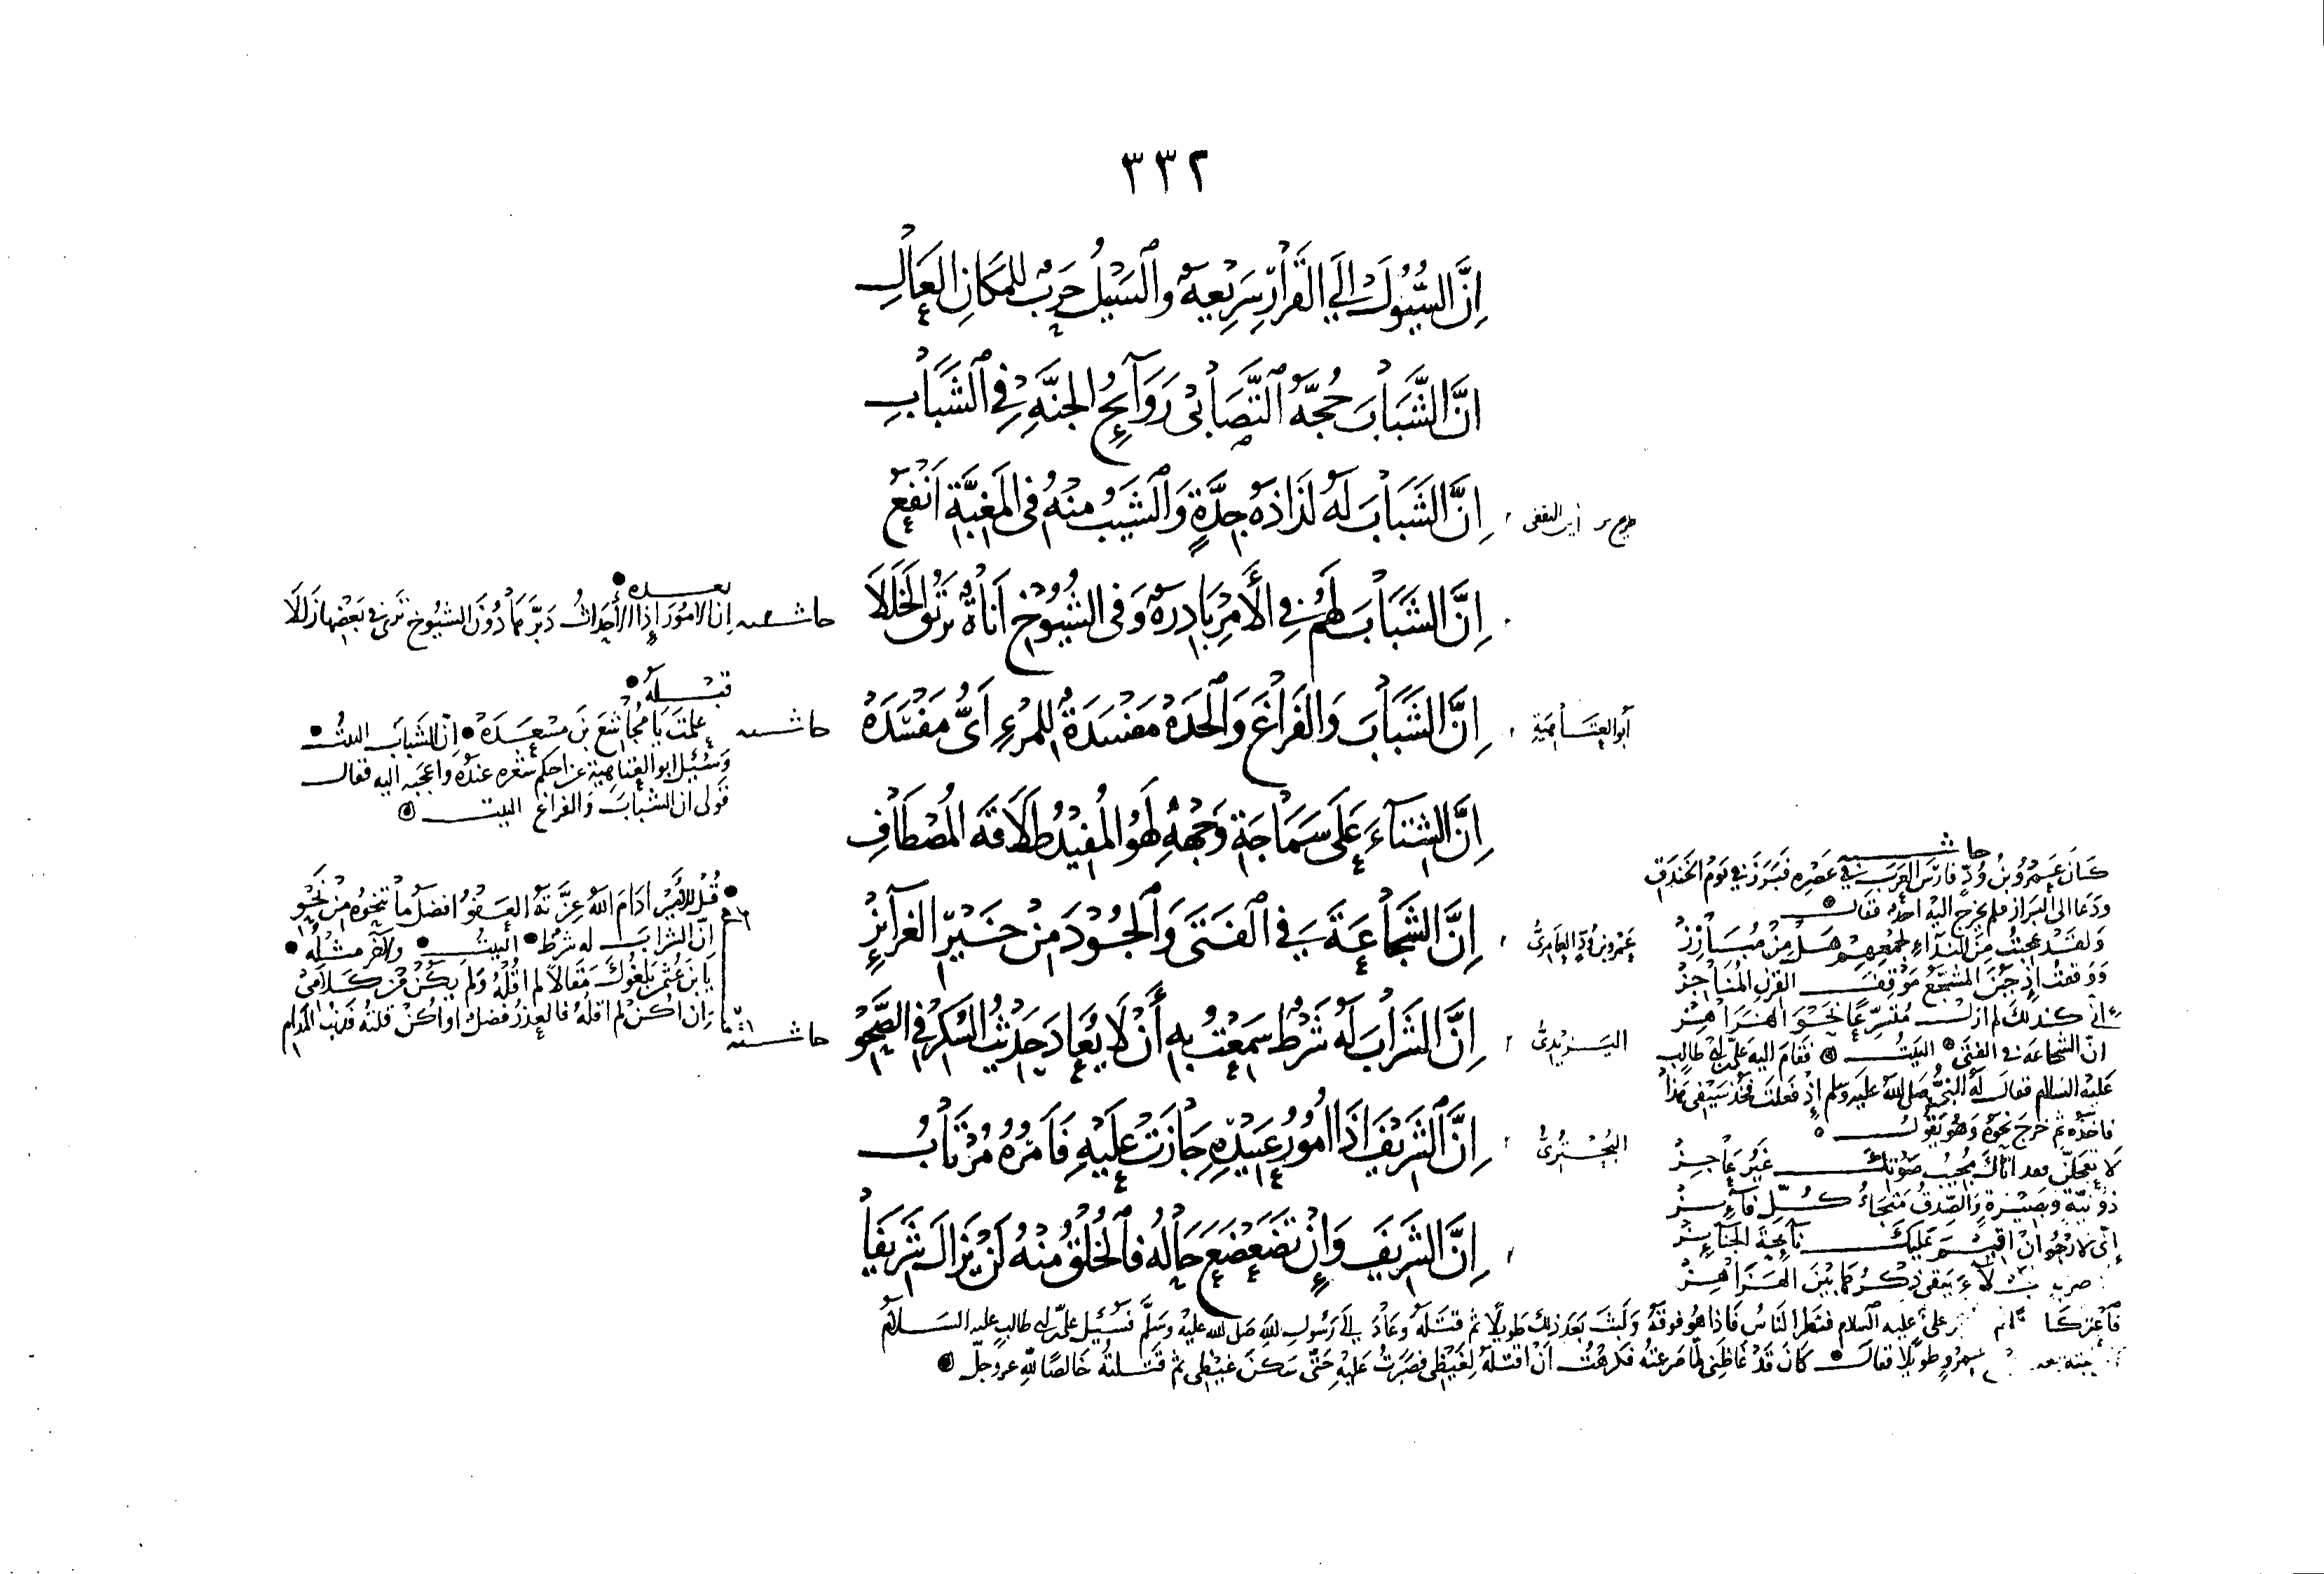 ٣٣٢
إِنَّ السُّيُولَ إِلَى القَرَارِ سَرِيعَةٌ وَالسَّيْلُ حَرْبٌ لِلْمَكَانِ العَالِي
إِنَّ الشَّبَابَ حُجَّةُ التَّصَابِي رَوَائِحُ الجَنَّةِ فِي الشَّبَابِ
إِنَّ الشَّبَابَ لَهُ لَذَاذَةُ جِدَّةٍ وَالشَّيْبُ مِنْهُ فِي المَغَبَّةِ أَنْفَعُ
الثقفي
إِنَّ الشَّبَابَ لَهُمْ فِي الأَمْرِ بَادِرَةٌ وَفِي الشُّيُوخِ أَنَاةٌ تَرْتُقُ الخَلَلَا
إِنَّ الشَّبَابَ وَالفَرَاغَ وَالجِدَهْ مَفْسَدَةٌ لِلْمَرْءِ أَيُّ مَفْسَدَهْ
أبو العتاهية
إِنَّ الشِّتَاءَ عَلَى سَمَاجَةِ وَجْهِهِ لَهُوَ المُفِيدُ طَلَاقَةَ المُصْطَافِ
إِنَّ الشَّجَاعَةَ فِي الفَتَى وَالجُودَ مِنْ خَيْرِ الغَرَائِزِ
عمرو بن ودّ العامريّ
إِنَّ الشَّرَابَ لَهُ شَرْطٌ سَمِعْتُ بِهِ أَنْ لَا يُعَادَ حَدِيثُ السُّكْرِ فِي الصَّحْوِ
اليزيدي
إِنَّ الشَّرِيفَ إِذَا أُمُورُ عَبِيدِهِ جَازَتْ عَلَيْهِ فَأَمْرُهُ مُرْتَابُ
البحتري
إِنَّ الشَّرِيفَ وَإِنْ تَضَعْضَعَ حَالُهُ فَالخُلْقُ مِنْهُ لَنْ يَزَالَ شَرِيفَا
بعده
حاشية إن الأمور إذا الأحداث دبرها دون الشيوخ ترى في بعضها زللا
قبله
حاشية علمت يا مجاشع بن مسعدة إن الشباب البيت
وسئل أبو العتاهية عن أحكم شعره عنده وأعجبه إليه فقال
قولي إن الشباب والفراغ البيت
قل للأمير أدام الله عزته العفو أفضل ما تنحوه من نحو
إن الشراب له شرط البيت ولآخر مثله
يا بن عثمن بلغوك مقالا لم أقله ولم يكن من كلامي
إن أكن لم أقله فالعذر فضل أو أكن قلته فذنب المدام
حاشية
حاشية
كان عمرو بن ودّ فارس العرب في عصره فبرز في يوم الخندق
ودعا إلى البراز فلم يخرج إليه أحد فقال
ولقد عجبت من النداء لجمعهم هل من مبارز
ووقفت إذ جبن المشجع موقف القرن المناجز
إني كذلك لم أزل متسرعا نحو الهزاهز
إن الشجاعة في الفتى البيت فقام إليه علي بن أبي طالب
عليه السلام فقال له النبي صلى الله عليه وسلم إذ فعلت فخذ سيفي هذا
فأخذه ثم خرج نحوه وهو يقول
لا تعجلن فقد أتاك مجيب صوتك غير عاجز
ذو نية وبصيرة والصدق منجاء كل فائز
إني لأرجو أن أقيم عليك نائحة الجنائز
يبقى ذكرها بين الهزاهز
علي عليه السلام فنظر الناس فإذا هو فوقه ولبث بعد ذلك طويلا ثم قتله وعاد إلى رسول الله صلى الله عليه وسلم فسئل علي بن أبي طالب عليه السلام
عمرو طويلا فقال كان قد غاظني لما صرعته فكرهت أن أقتله لغيظي فصبرت عليه حتى سكن غيظي ثم قتلته خالصا لله عز وجل